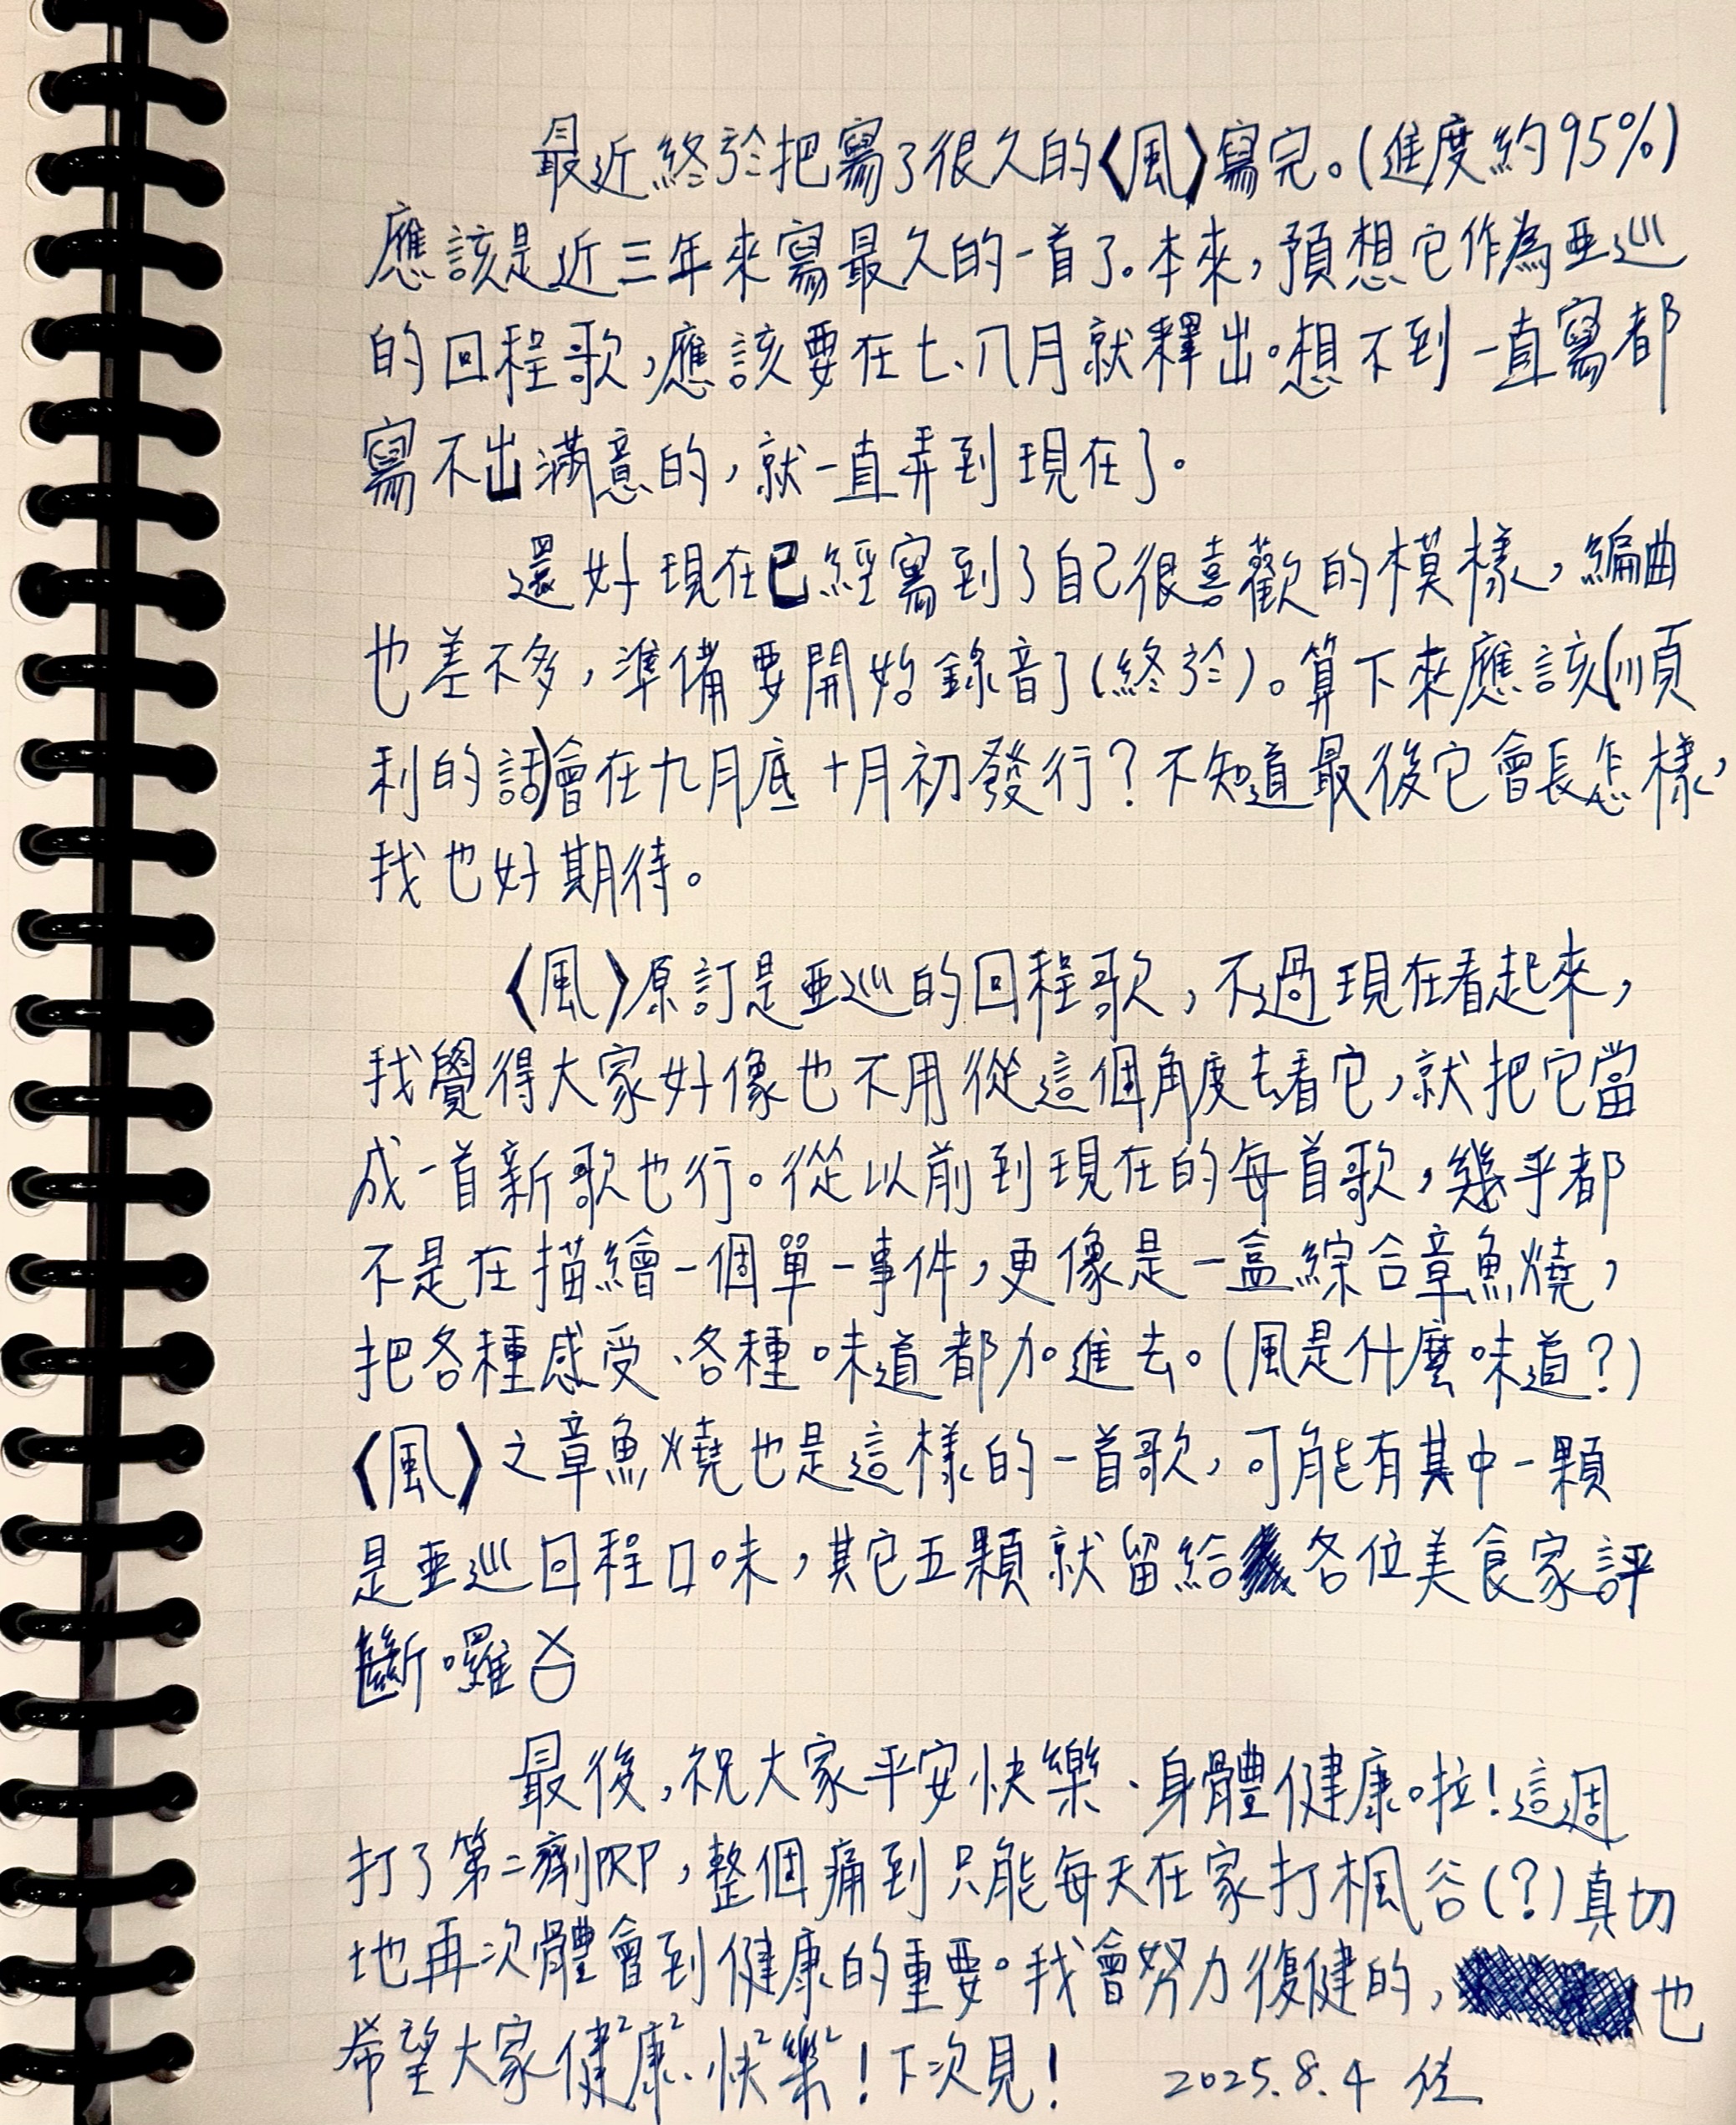 最近終於把寫了很久的〈風〉寫完。(進度約95%)
應該是近三年來寫最久的一首了。本來,預想它作為亞巡
的回程歌,應該要在七、八月就釋出。想不到一直寫都
寫不出滿意的,就一直弄到現在了。
還好現在已經寫到了自己很喜歡的模樣,編曲
也差不多,準備要開始錄音了(終於)。算下來應該(順
利的話)會在九月底十月初發行?不知道最後它會長怎樣,
我也好期待。
〈風〉原訂是亞巡的回程歌,不過現在看起來,
我覺得大家好像也不用從這個角度去看它,就把它當
成一首新歌也行。從以前到現在的每首歌,幾乎都
不是在描繪一個單一事件,更像是一盒綜合章魚燒,
把各種感受、各種味道都加進去。(風是什麼味道?)
〈風〉之章魚燒也是這樣的一首歌,可能有其中一顆
是亞巡回程口味,其它五顆就留給各位美食家評
斷囉
最後,祝大家平安快樂、身體健康啦!這週
打了第二劑PRP,整個痛到只能每天在家打楓谷(?)真切
地再次體會到健康的重要。我會努力復健的,也
希望大家健²康²、快²樂²!下次見!
2025.8.4 佐